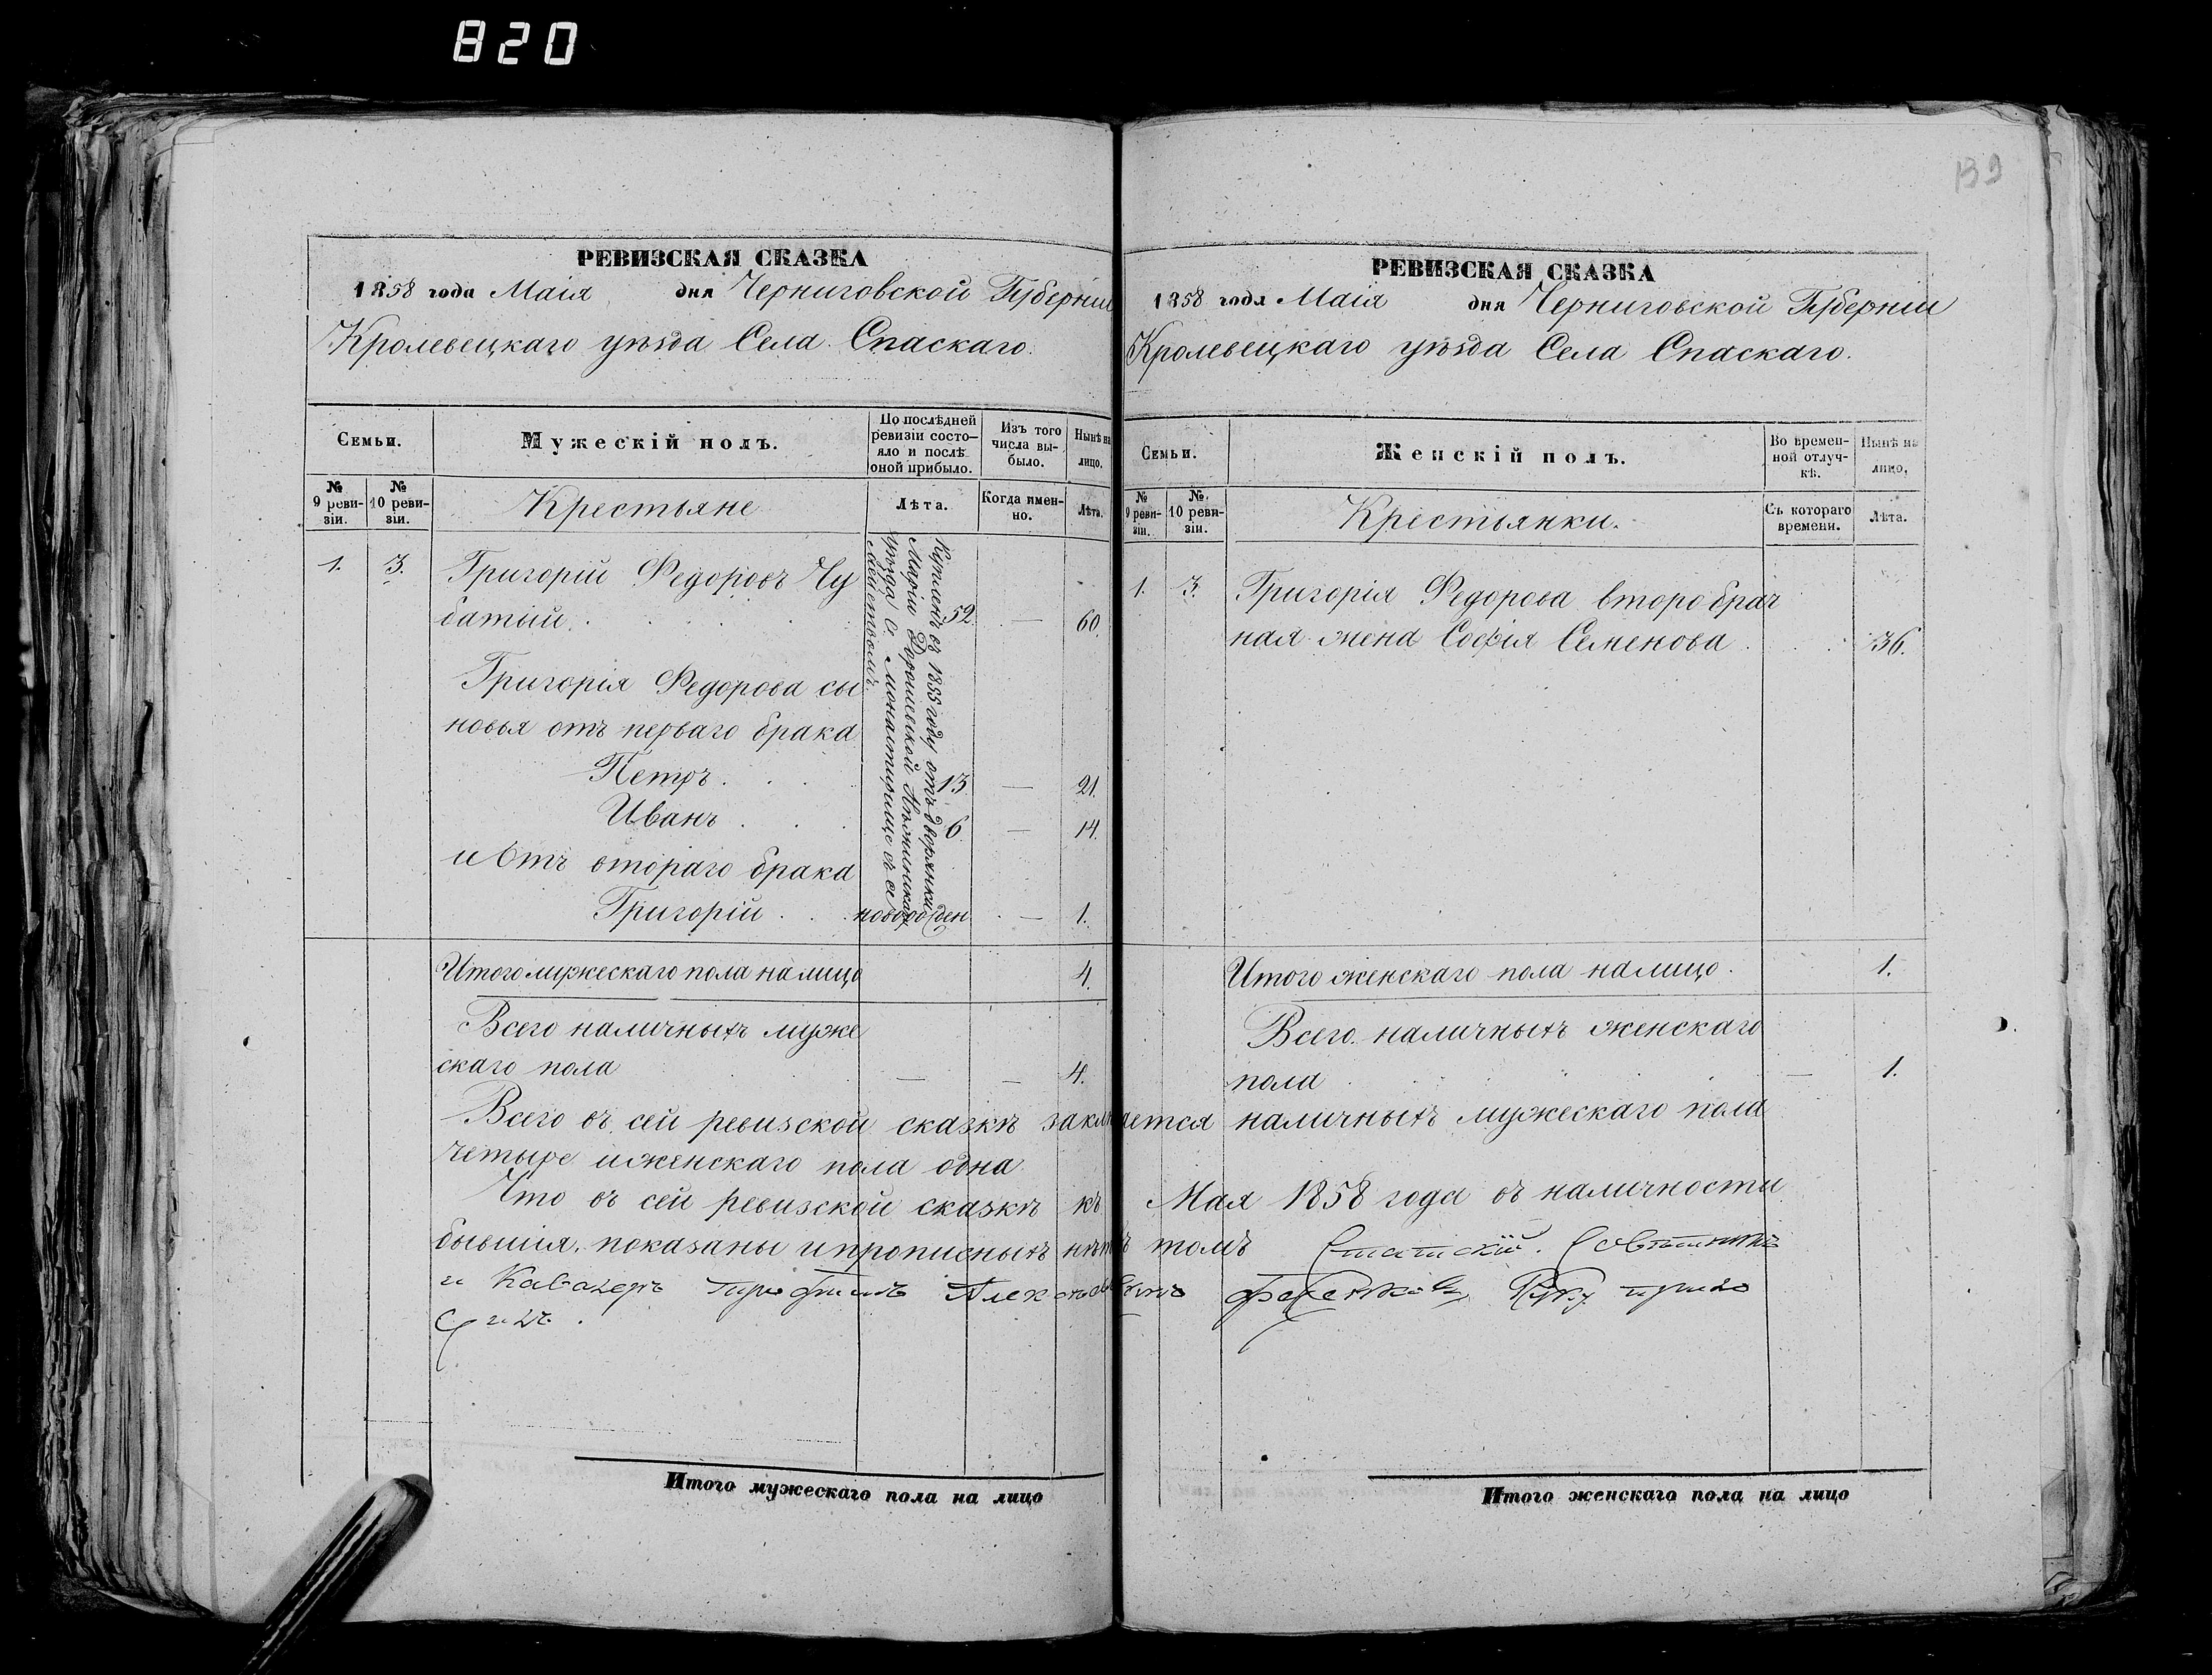 820
139
РЕВИЗСКАЯ СКАЗКА
1858 года Маія дня Черниговской Губерніи
Кролевецкаго уѣзда Села Спаскаго.
Семьи.
Мужескій полъ.
По послѣдней ревизіи состо-
яло и послѣ
оной прибыло.
Изъ того
числа вы-
было.
Нынѣ на
лицо.
№
9 реви-
зіи.
№
10 реви-
зіи.
Крестьяне
Лѣта.
Когда имен-
но.
Лѣта.
1. 3. Григорій Федоровъ Чу
батый. 52 — 60.
Григорія Федорова сы
новья отъ перваго брака
Петръ. 13 — 21.
Иванъ 6 — 14.
и Отъ втораго брака
Григорій новорожден — 1.
Купленъ въ 1855 году отъ дворянки
Маріи
уѣзда С. Монастирище съ се
мействомъ.
Итого мужескаго пола налицо 4.
Всего наличныхъ муже
скаго пола — — 4.
РЕВИЗСКАЯ СКАЗКА
1858 года Маія дня Черниговской Губерніи
Кролевецкаго уѣзда Села Спаскаго.
Семьи.
Женскій полъ.
Во времен-
ной отлуч-
кѣ.
Нынѣ на
лицо.
№
9 реви-
зіи.
№
10 реви-
зіи.
Крестьянки.
Съ котораго
времени.
Лѣта.
1. 3. Григорія Федорова второбрач
ная жена Софія Семенова 36.
Итого женскаго пола налицо. 1.
Всего наличныхъ женскаго
пола — 1.
Всего въ сей ревизской сказкѣ заключается наличныхъ мужескаго пола
четыре и женскаго пола одна
Что въ сей ревизской сказкѣ къ Мая 1858 года въ наличности
бывшія, показаны и прописныхъ нѣтъ въ томъ Статскій Совѣтникъ
и Кавалеръ
Итого мужескаго пола на лицо
Итого женскаго пола на лицо